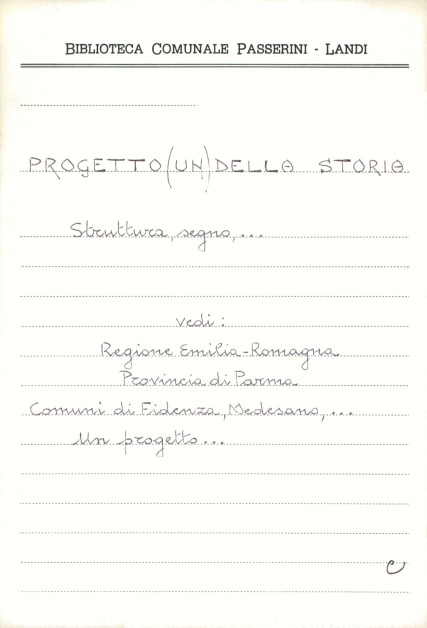 BIBLIOTECA COMUNALE PASSERINI - LANDI
PROGETTO (UN) DELLA STORIA
Struttura, segno, ...
vedi :
Regione Emilia-Romagna
Provincia di Parma
Comuni di Fidenza, Medesano, ...
Un progetto ...
C